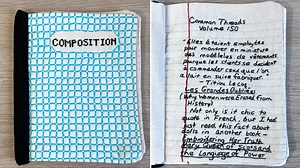 COMPOSITION
Common Threads
Volume 150
"Elles étaient employées
pour montrer en miniature
des modèles de vêtements
pourque les clients se decident
a commander ceux que l'on
allait en suite fabriquer."
- Titiou Lecoq
Les Grandes Oubliées:
Why Women were Erased from
History!
Not only is it chic to
quote in French, but I had
just read this fact about
dolls in another book -
Embroidering Her Truth
Mary Queen of Scots and
the Language of Power